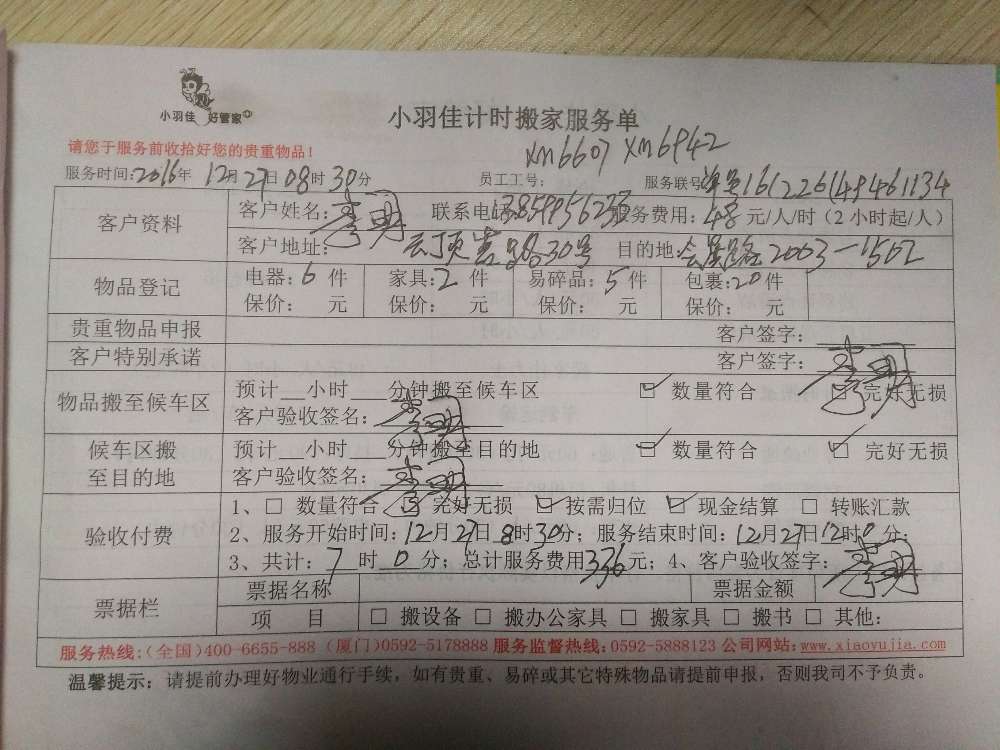 小羽佳 好管家
小羽佳计时搬家服务单
请您于服务前收拾好您的贵重物品！
xm6607 xm6942
服务时间:2016年 12月27日 08时 30分 员工工号: 服务联号:
客户资料 客户姓名: 李明 联系电话: 服务费用: 48 元/人/时（2 小时起/人）
客户地址: 云顶 路30号 目的地: 会展路2003-1502
物品登记 电器:6 件 家具:2 件 易碎品:5 件 包裹:20件
保价: 元 保价: 元 保价: 元 保价: 元
贵重物品申报 客户签字:
客户特别承诺 客户签字: 李明
物品搬至候车区 预计__小时____分钟搬至候车区 ☑ 数量符合 ☑ 完好无损
客户验收签名: 李明
候车区搬至目的地 预计__小时____分钟搬至目的地 ☑ 数量符合 ☑ 完好无损
客户验收签名: 李明
验收付费 1、☐ 数量符合 ☑ 完好无损 ☑ 按需归位 ☑ 现金结算 ☐ 转账汇款
2、服务开始时间: 12月27日 8时30分；服务结束时间: 12月27日12时0分；
3、共计: 7 时 0 分；总计服务费用336元；4、客户验收签字: 李明
票据栏 票据名称 票据金额
项 目 ☐ 搬设备 ☐ 搬办公家具 ☐ 搬家具 ☐ 搬书 ☐ 其他:
服务热线:(全国)400-6655-888 (厦门)0592-5178888 服务监督热线:0592-5888123 公司网站:www.xiaoyujia.com
温馨提示: 请提前办理好物业通行手续，如有贵重、易碎或其它特殊物品请提前申报，否则我司不予负责。